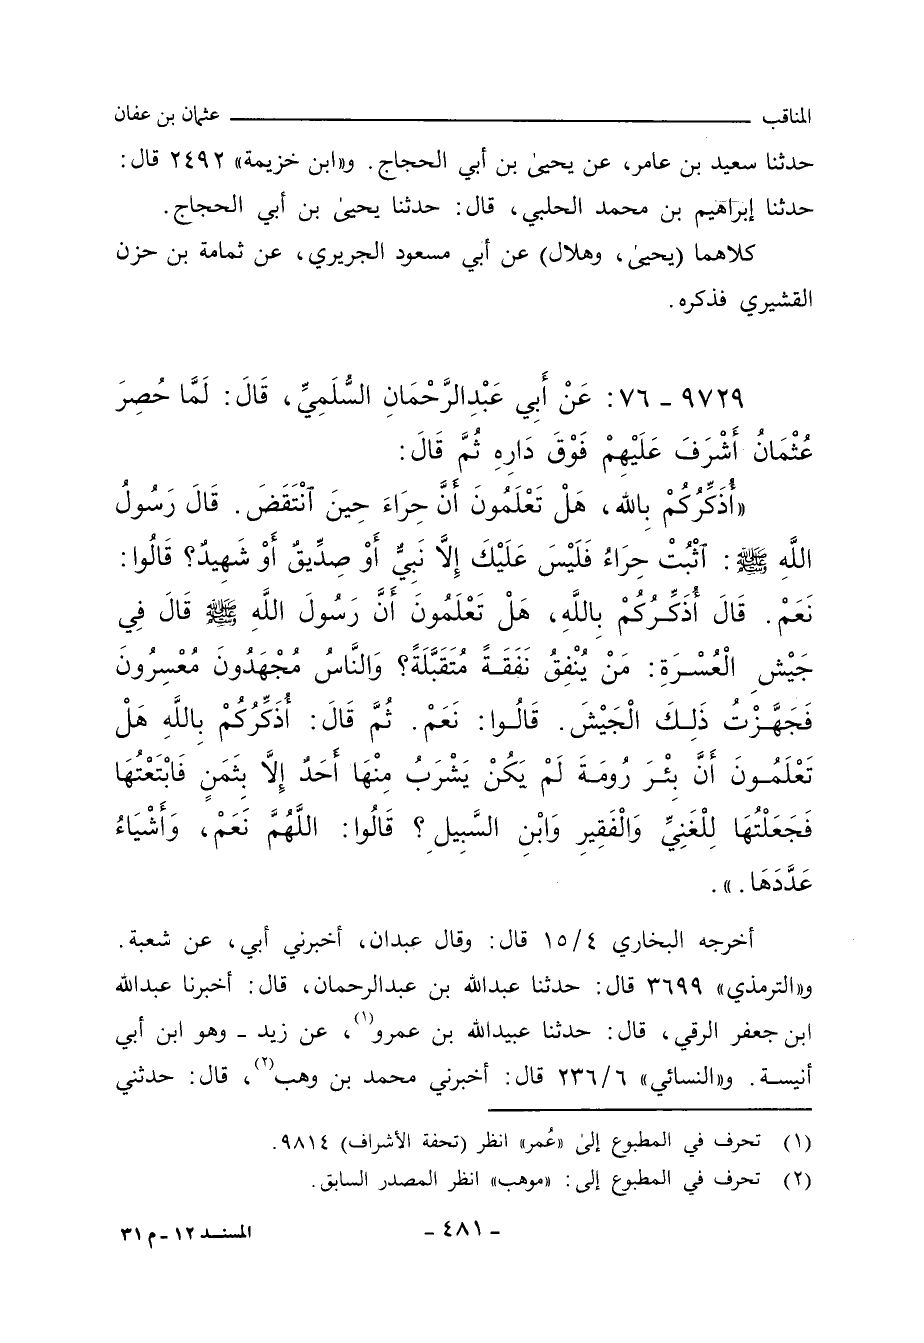 المناقب ـــــــــــــــــــــ عثمان بن عفان
حدثنا سعيد بن عامر، عن يحيىٰ بن أبي الحجاج. و«ابن خزيمة» ٢٤٩٢ قال:
حدثنا إبراهيم بن محمد الحلبي، قال: حدثنا يحيىٰ بن أبي الحجاج.
كلاهما (يحيىٰ، وهلال) عن أبي مسعود الجريري، عن ثمامة بن حزن
القشيري فذكره.
٩٧٢٩ ـ ٧٦: عَنْ أَبِي عَبْدِالرَّحْمَانِ السُّلَمِيِّ، قَالَ: لَمَّا حُصِرَ
عُثْمَانُ أَشْرَفَ عَلَيْهِمْ فَوْقَ دَارِهِ ثُمَّ قَالَ:
«أُذَكِّرُكُمْ بِالله، هَلْ تَعْلَمُونَ أَنَّ حِرَاءَ حِينَ ٱنْتَقَضَ. قَالَ رَسُولُ
اللَّهِ ﷺ: ٱثْبُتْ حِرَاءُ فَلَيْسَ عَلَيْكَ إِلَّا نَبِيٌّ أَوْ صِدِّيقٌ أَوْ شَهِيدٌ؟ قَالُوا:
نَعَمْ. قَالَ أُذَكِّرُكُمْ بِاللَّهِ، هَلْ تَعْلَمُونَ أَنَّ رَسُولَ اللَّهِ ﷺ قَالَ فِي
جَيْشِ الْعُسْرَةِ: مَنْ يُنْفِقُ نَفَقَةً مُتَقَبَّلَةً؟ وَالنَّاسُ مُجْهَدُونَ مُعْسِرُونَ
فَجَهَّزْتُ ذَلِكَ الْجَيْشَ. قَالُوا: نَعَمْ. ثُمَّ قَالَ: أُذَكِّرُكُمْ بِاللَّهِ هَلْ
تَعْلَمُونَ أَنَّ بِئْرَ رُومَةَ لَمْ يَكُنْ يَشْرَبُ مِنْهَا أَحَدٌ إِلَّا بِثَمَنٍ فَابْتَعْتُهَا
فَجَعَلْتُهَا لِلْغَنِيِّ وَالْفَقِيرِ وَابْنِ السَّبِيلِ؟ قَالُوا: اللَّهُمَّ نَعَمْ، وَأَشْيَاءُ
عَدَّدَهَا.».
أخرجه البخاري ١٥/٤ قال: وقال عبدان، أخبرني أبي، عن شعبة.
و«الترمذي» ٣٦٩٩ قال: حدثنا عبدالله بن عبدالرحمان، قال: أخبرنا عبدالله
ابن جعفر الرقي، قال: حدثنا عبيدالله بن عمرو(١)، عن زيد ـ وهو ابن أبي
أنيسة. و«النسائي» ٢٣٦/٦ قال: أخبرني محمد بن وهب(٢)، قال: حدثني
(١) تحرف في المطبوع إلىٰ «عُمر» انظر (تحفة الأشراف) ٩٨١٤.
(٢) تحرف في المطبوع إلى: «موهب» انظر المصدر السابق.
ـ ٤٨١ ـ
المسند ١٢ ـ م ٣١